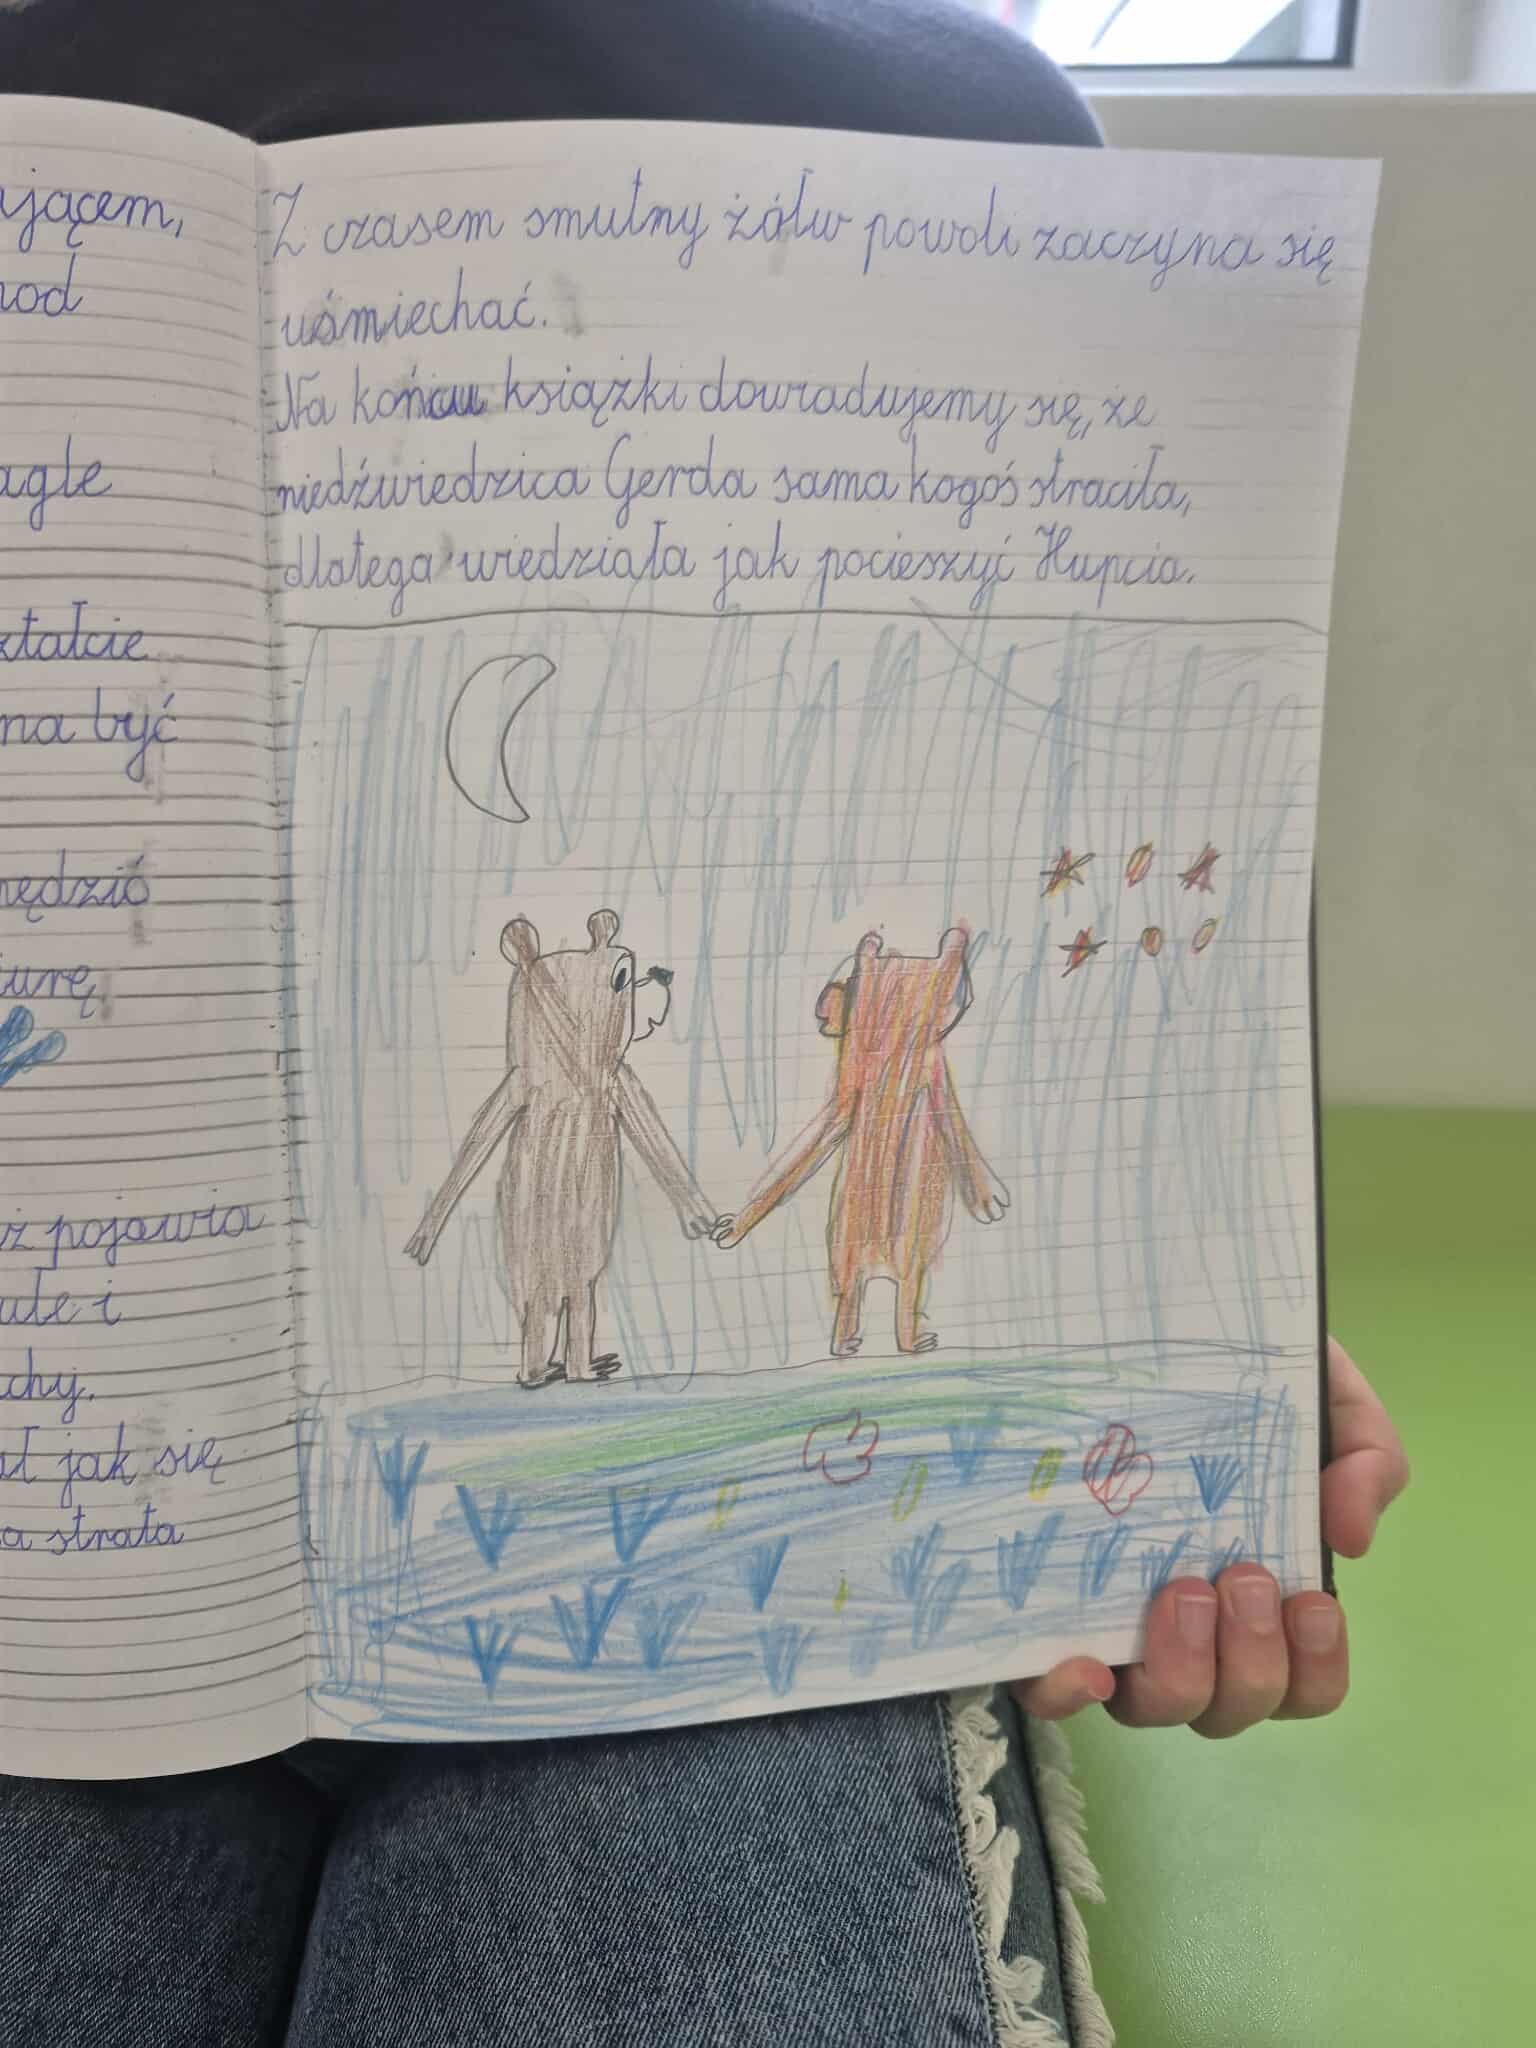 ającem,
nod
agle
ztałcie
na być
rędzić
iurę.
ż pojawia
ule i
chy.
ał jak się
a strata
Z czasem smutny żółw powoli zaczyna się
uśmiechać.
Na końcu książki dowiadujemy się, że
niedźwiedzica Gerda sama kogoś straciła,
dlatego wiedziała jak pocieszyć Hupcia.